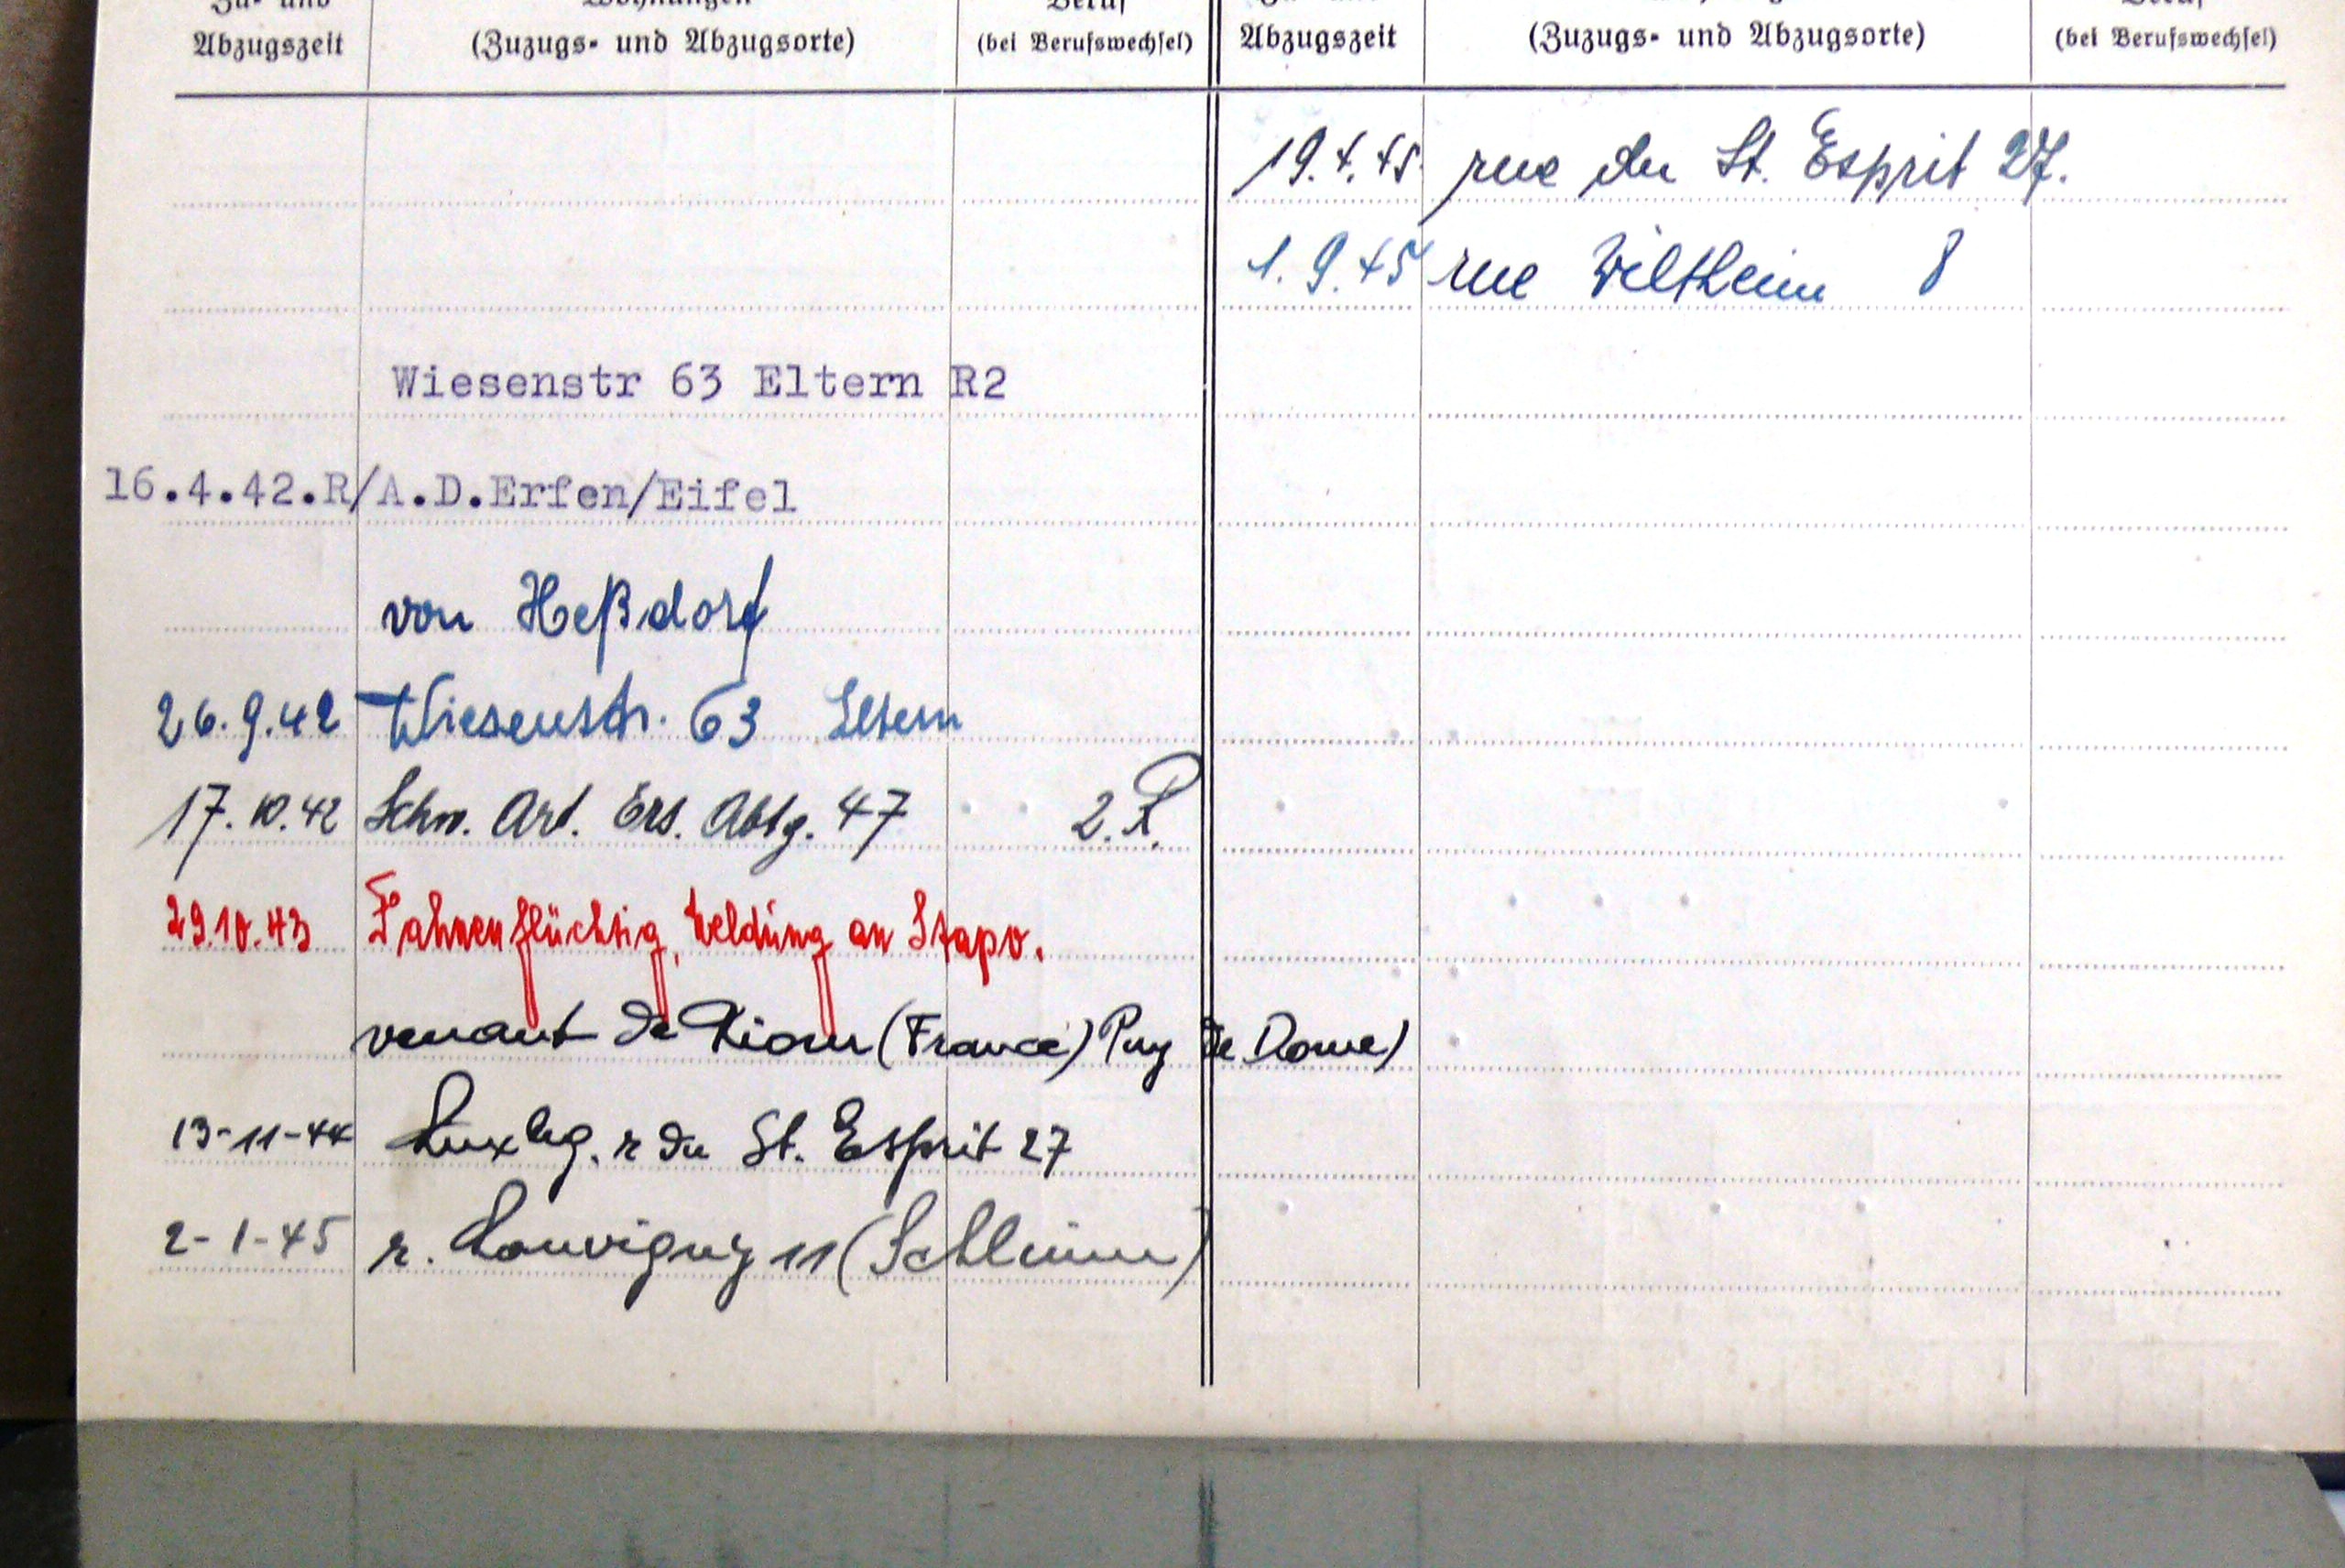 Zu- und Wohnungen Beruf
Abzugszeit (Zuzugs- und Abzugsorte) (bei Berufswechsel)
Wiesenstr 63 Eltern R2
16.4.42.R/A.D.Erfen/Eifel
von Heßdorf
26.9.42 Wiesenstr. 63 Eltern
17.10.42 Schw. Art. Ers. Abtg. 47 2.R.
29.10.43 Fahnenflüchtig, Meldung an Stapo.
venant de Riom (France) Puy de Dome)
13-11-44 Luxbg. r du St. Esprit 27
2-1-45 r. Louvigny 11 (Schleimer)
Abzugszeit (Zuzugs- und Abzugsorte) (bei Berufswechsel)
19.4.45. rue du St. Esprit 27.
1.9.45 rue Wiltheim 8